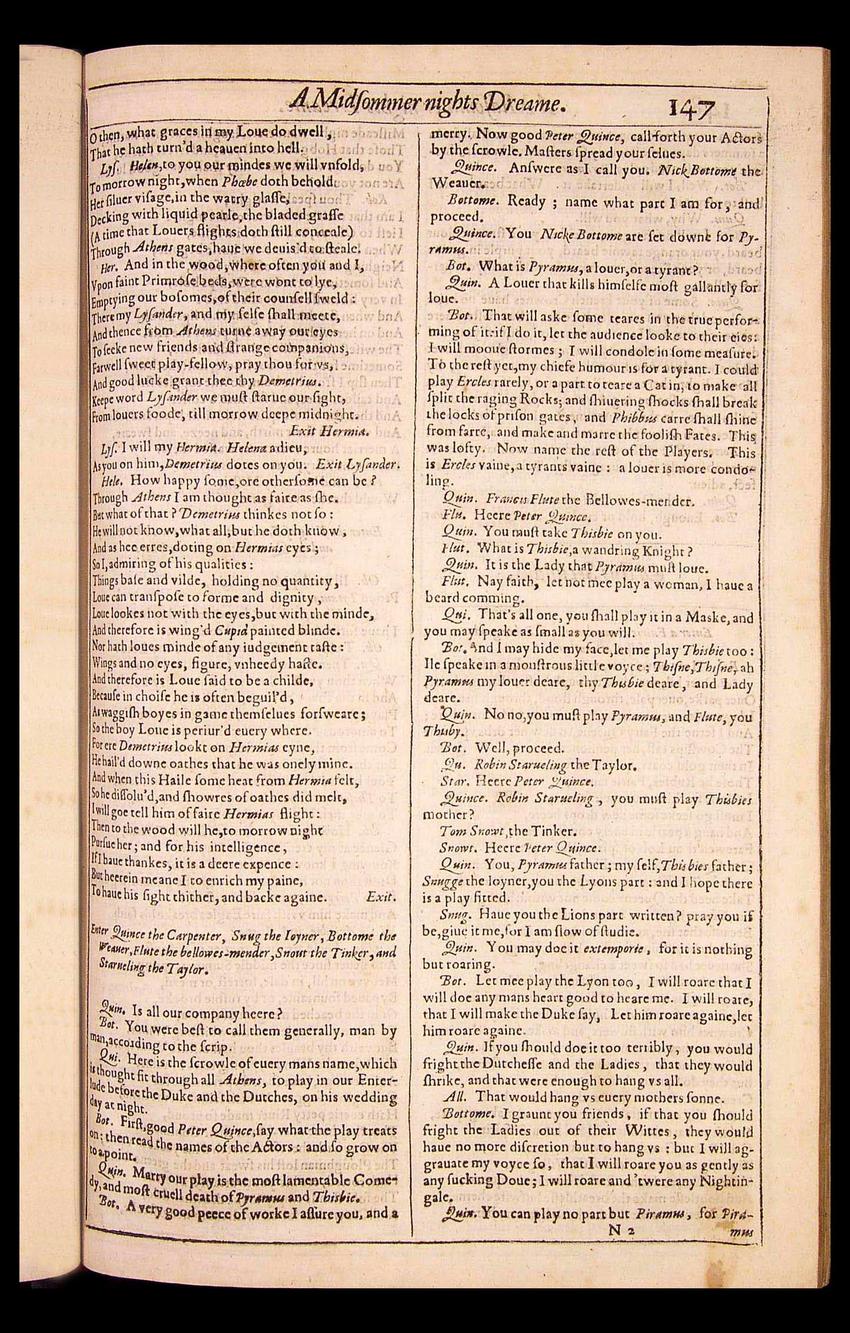 A Midſommer nights Dreame. 147
O then, what graces in my Loue do dwell,
That he hath turn'd a heauen into hell.
Lyſ. Helen, to you our mindes we will vnfold,
To morrow night, when Phœbe doth behold
Her ſiluer viſage, in the watry glaſſe,
Decking with liquid pearle, the bladed graſſe
(A time that Louers flights doth ſtill conceale)
Through Athens gates, haue we deuis'd to ſteale.
Her. And in the wood, where often you and I,
Vpon faint Primroſe beds, were wont to lye,
Emptying our boſomes, of their counſell ſweld :
There my Lyſander, and my ſelfe ſhall meete,
And thence from Athens turne away our eyes
To ſeeke new friends and ſtrange companions,
Farwell ſweet play-fellow, pray thou for vs,
And good lucke grant thee thy Demetrius.
Keepe word Lyſander we muſt ſtarue our ſight,
From louers foode, till morrow deepe midnight.
Exit Hermia.
Lyſ. I will my Hermia. Helena adieu,
As you on him, Demetrius dotes on you. Exit Lyſander.
Hele. How happy ſome, ore otherſome can be ?
Through Athens I am thought as faire as ſhe.
But what of that ? Demetrius thinkes not ſo :
He will not know, what all, but he doth know,
And as hee erres, doting on Hermias eyes ;
So I, admiring of his qualities :
Things baſe and vilde, holding no quantity,
Loue can tranſpoſe to forme and dignity,
Loue lookes not with the eyes, but with the minde,
And therefore is wing'd Cupid painted blinde.
Nor hath loues minde of any iudgement taſte :
Wings and no eyes, figure, vnheedy haſte.
And therefore is Loue ſaid to be a childe,
Becauſe in choiſe he is often beguil'd,
As waggiſh boyes in game themſelues forſweare ;
So the boy Loue is periur'd euery where.
For ere Demetrius lookt on Hermias eyne,
He hail'd downe oathes that he was onely mine.
And when this Haile ſome heat from Hermia felt,
So he diſſolu'd, and ſhowres of oathes did melt,
I will goe tell him of faire Hermias flight :
Then to the wood will he, to morrow night
Purſue her ; and for his intelligence,
If I haue thankes, it is a deere expence :
But heerein meane I to enrich my paine,
To haue his ſight thither, and backe againe. Exit.
Enter Quince the Carpenter, Snug the Ioyner, Bottome the
Weauer, Flute the bellowes-mender, Snout the Tinker, and
Starueling the Taylor.
Quin. Is all our company heere ?
Bot. You were beſt to call them generally, man by
man, according to the ſcrip.
Qui. Here is the ſcrowle of euery mans name, which
is thought fit through all Athens, to play in our Enter-
lude before the Duke and the Dutches, on his wedding
day at night.
Bot. Firſt, good Peter Quince, ſay what the play treats
on : then read the names of the Actors : and ſo grow on
to a point.
Quin. Marry our play is the moſt lamentable Come-
dy, and moſt cruell death of Pyramus and Thisbie.
Bot. A very good peece of worke I aſſure you, and a
merry. Now good Peter Quince, call forth your Actors
by the ſcrowle. Maſters ſpread your ſelues.
Quince. Anſwere as I call you. Nick Bottome the
Weauer.
Bottome. Ready ; name what part I am for, and
proceed.
Quince. You Nicke Bottome are ſet downe for Py-
ramus.
Bot. What is Pyramus, a louer, or a tyrant ?
Quin. A Louer that kills himſelfe moſt gallantly for
loue.
Bot. That will aske ſome teares in the true perfor-
ming of it : if I do it, let the audience looke to their eies :
I will mooue ſtormes ; I will condole in ſome meaſure.
To the reſt yet, my chiefe humour is for a tyrant. I could
play Ercles rarely, or a part to teare a Cat in, to make all
ſplit the raging Rocks; and ſhiuering ſhocks ſhall break
the locks of priſon gates, and Phibbus carre ſhall ſhine
from farre, and make and marre the fooliſh Fates. This
was lofty. Now name the reſt of the Players. This
is Ercles vaine, a tyrants vaine : a louer is more condo-
ling.
Quin. Francis Flute the Bellowes-mender.
Flu. Heere Peter Quince.
Quin. You muſt take Thisbie on you.
Flut. What is Thisbie, a wandring Knight ?
Quin. It is the Lady that Pyramus muſt loue.
Flut. Nay faith, let not mee play a woman, I haue a
beard comming.
Qui. That's all one, you ſhall play it in a Maske, and
you may ſpeake as ſmall as you will.
Bot. And I may hide my face, let me play Thisbie too :
Ile ſpeake in a monſtrous little voyce ; Thiſne, Thiſne, ah
Pyramus my louer deare, thy Thisbie deare, and Lady
deare.
Quin. No no, you muſt play Pyramus, and Flute, you
Thisby.
Bot. Well, proceed.
Qu. Robin Starueling the Taylor.
Star. Heere Peter Quince.
Quince. Robin Starueling, you muſt play Thisbies
mother ?
Tom Snowt, the Tinker.
Snowt. Heere Peter Quince.
Quin. You, Pyramus father ; my ſelf, Thisbies father ;
Snugge the Ioyner, you the Lyons part : and I hope there
is a play fitted.
Snug. Haue you the Lions part written ? pray you if
be, giue it me, for I am ſlow of ſtudie.
Quin. You may doe it extemporie, for it is nothing
but roaring.
Bot. Let mee play the Lyon too, I will roare that I
will doe any mans heart good to heare me. I will roare,
that I will make the Duke ſay, Let him roare againe, let
him roare againe.
Quin. If you ſhould doe it too terribly, you would
fright the Dutcheſſe and the Ladies, that they would
ſhrike, and that were enough to hang vs all.
All. That would hang vs euery mothers ſonne.
Bottome. I graunt you friends, if that you ſhould
fright the Ladies out of their Wittes, they would
haue no more diſcretion but to hang vs : but I will ag-
grauate my voyce ſo, that I will roare you as gently as
any ſucking Doue ; I will roare and 'twere any Nightin-
gale.
Quin. You can play no part but Piramus, for Pira-
N 2 mus